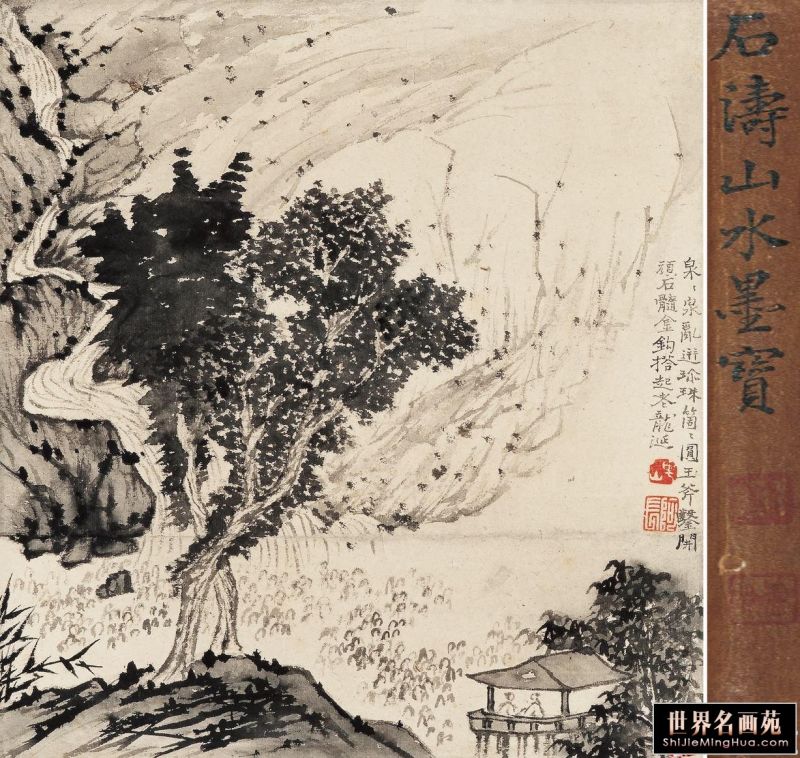 石濤山水墨寶
泉〻泉亂迸珍珠箇〻圓玉斧鑿開
頑石髓金鈎搭起老龍涎
阿長
世界名画苑
ShiJieMingHua.com